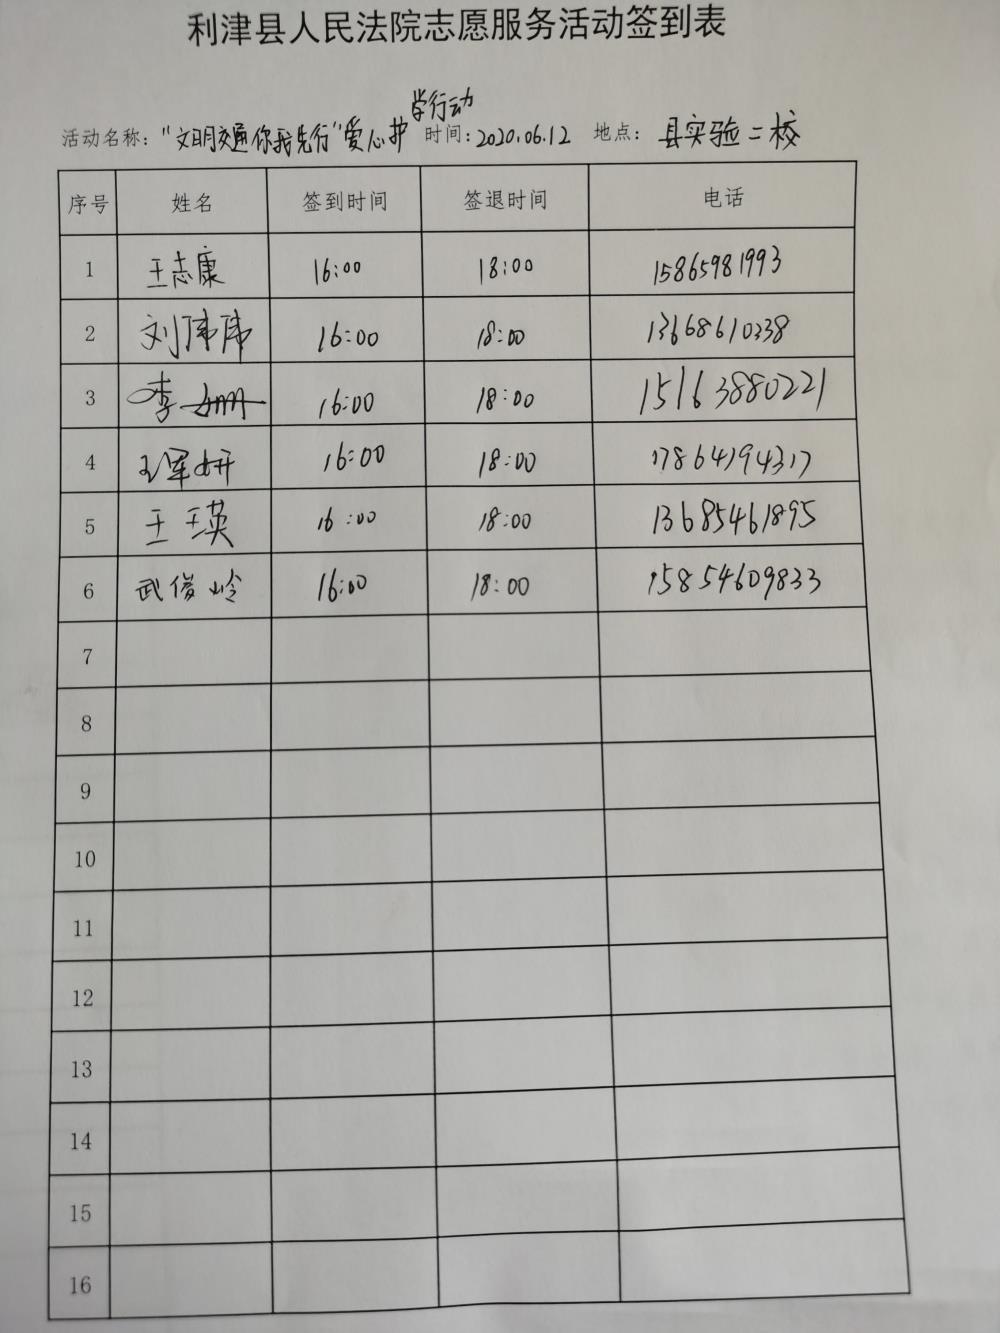 利津县人民法院志愿服务活动签到表
活动名称："文明交通你我先行"爱心护学行动 时间：2020.06.12 地点：县实验二校
序号 姓名 签到时间 签退时间 电话
1 王志康 16:00 18:00 15865981993
2 刘伟伟 16:00 18:00 13668610338
3 李姗姗 16:00 18:00 15163880221
4 16:00 18:00 17864194317
5 王瑛 16:00 18:00 13685461895
6 武俊岭 16:00 18:00 15854609833
7
8
9
10
11
12
13
14
15
16